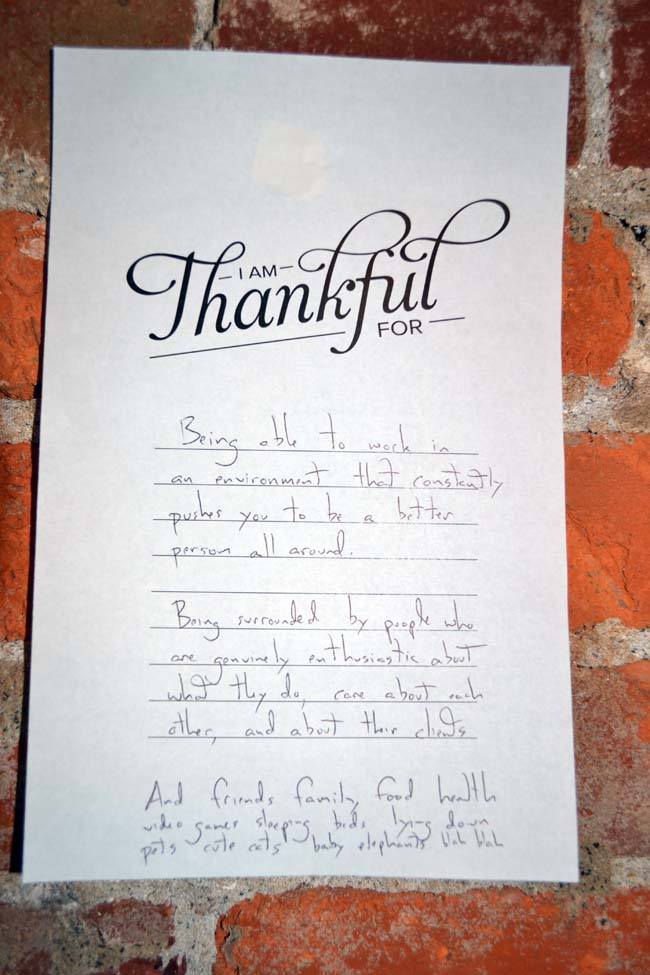 I AM
Thankful
FOR
Being able to work in
an environment that constantly
pushes you to be a better
person all around.
Being surrounded by people who
are genuinely enthusiastic about
what they do, care about each
other, and about their clients
And friends family, food health
video games sleeping beds lying down
pets cute cats baby elephants blah blah